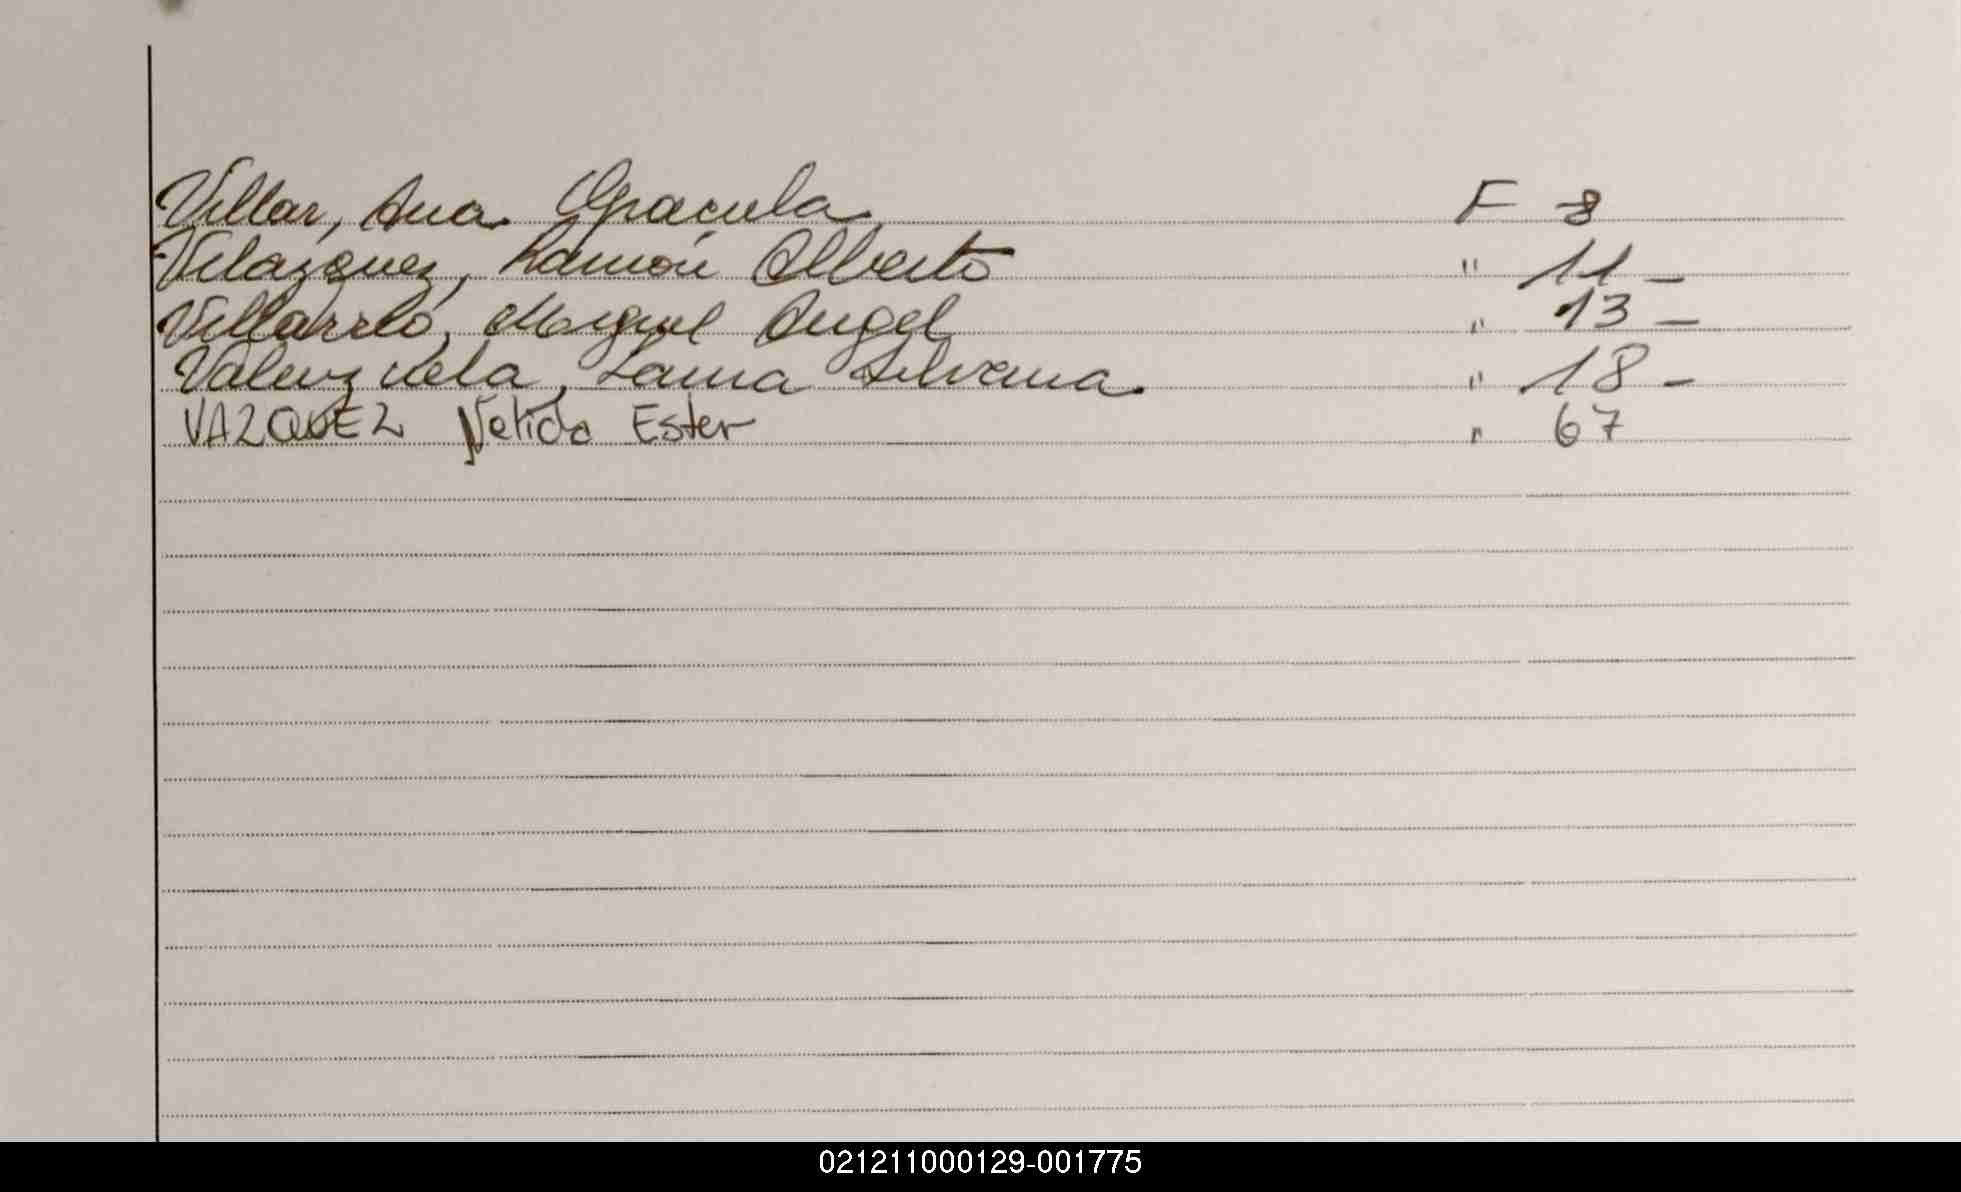 Villar, Ana Graciela F 8
Velazquez, Ramón Alberto " 11 -
Miguel Angel " 13 -
Valenzuela, Laura Silvana. " 18 -
VAZQUEZ Nelida Ester " 67
021211000129-001775